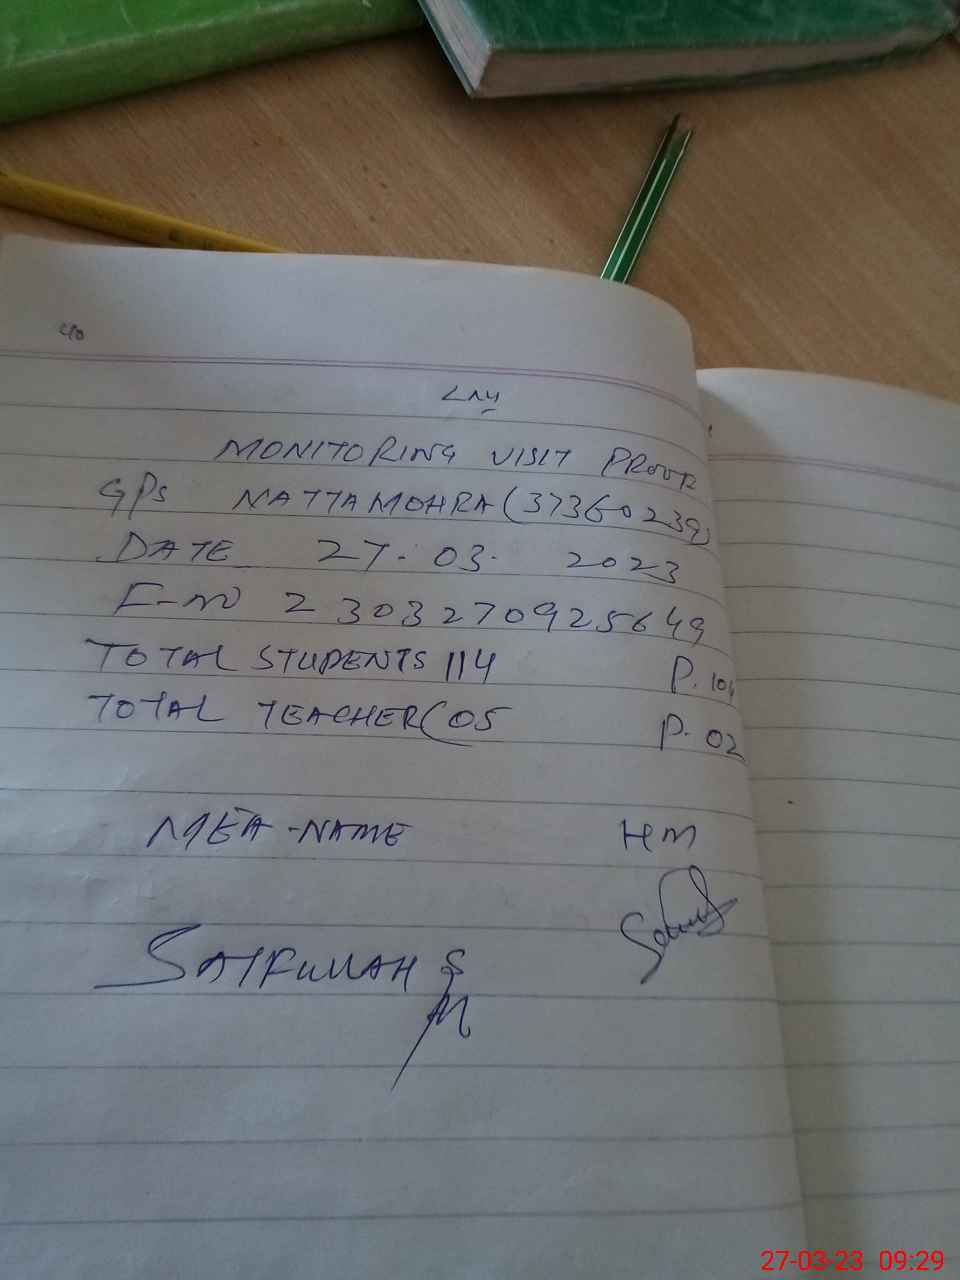 40
MONITORING VISIT PROOF
GPS NATTAMOHRA (37360239)
DATE 27.03. 2023
F-NO 2303270925649
TOTAL STUDENTS 114 P. 104
TOTAL TEACHER(05 P. 02
MEA-NAME HM
SAIFULLAH
27-03-23 09:29